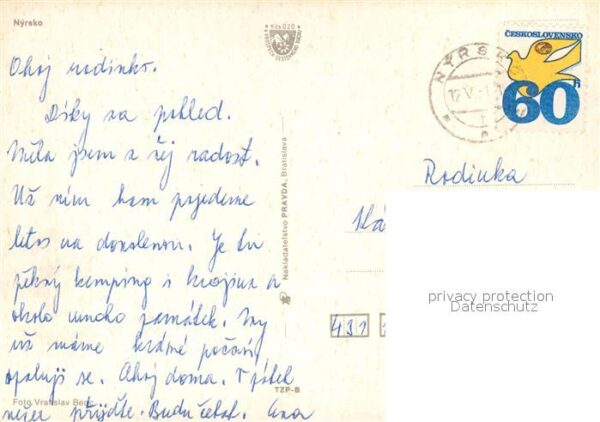 Nýrsko
Ahoj rodinko.
Díky za pohled.
Měla jsem z něj radost.
Už vím kam pojedeme
letos na dovolenou. Je tu
pěkný kemping i krajina a
okolo mnoho památek. My
už máme krásné počasí,
opaluji se. Ahoj doma. V pátek
večer přijďte. Budu čekat.
Foto Vratislav
TZP-B
Nakladatelství PRAVDA, Bratislava
020
NÝRSK
12.V.
ČESKOSLOVENSKO
60 h
Rodinka
431
privacy protection
Datenschutz